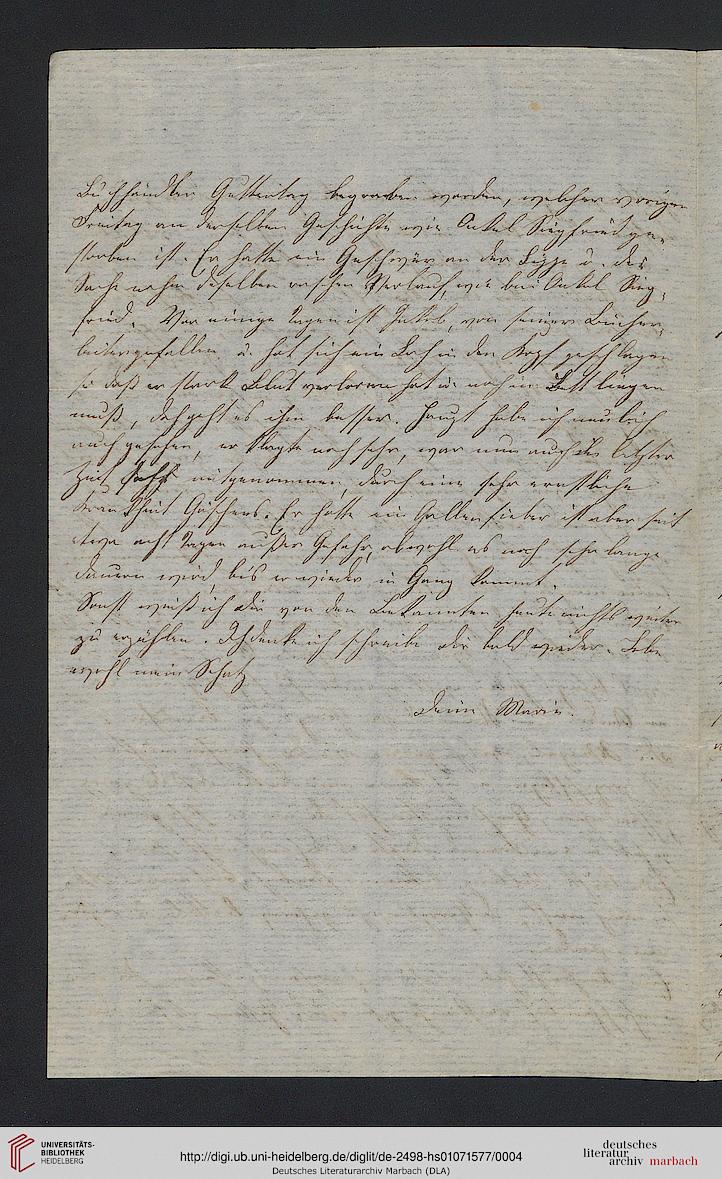 Buchhändler Guttentag begraben worden, welcher vorigen
Freitag an derselben Geschichte wie Onkel Siegfried ge-
storben ist. Er hatte ein Geschwür an der Lippe u. die
Sache nahm denselben raschen Verlauf, wie bei Onkel Sieg-
fried. Vor einigen Tagen ist von seiner Bücher-
leiter gefallen u. hat sich ein Loch in den Kopf geschlagen
so daß er stark Blut verloren hat u. noch im Bett liegen
muß, doch geht es ihm besser. Haupt habe ich neulich
auch gesehen, er klagte noch sehr, war nun auch die letzte
Zeit sehr mitgenommen, durch eine sehr ernstliche
Krankheit Göschens. Er hatte ein Gallenfieber ist aber seit
etwa acht Tagen außer Gefahr, obwohl es noch sehr lange
dauern wird bis er wieder in Gang kommt.
Sonst weiß ich dir von den Bekannten heute nichts weiter
zu erzählen. Ich denke ich schreibe dir bald wieder. Lebe
wohl mein Schatz
Deine Marie.
UNIVERSITÄTS-
BIBLIOTHEK
HEIDELBERG
http://digi.ub.uni-heidelberg.de/diglit/de-2498-hs01071577/0004
Deutsches Literaturarchiv Marbach (DLA)
deutsches
literatur
archiv marbach